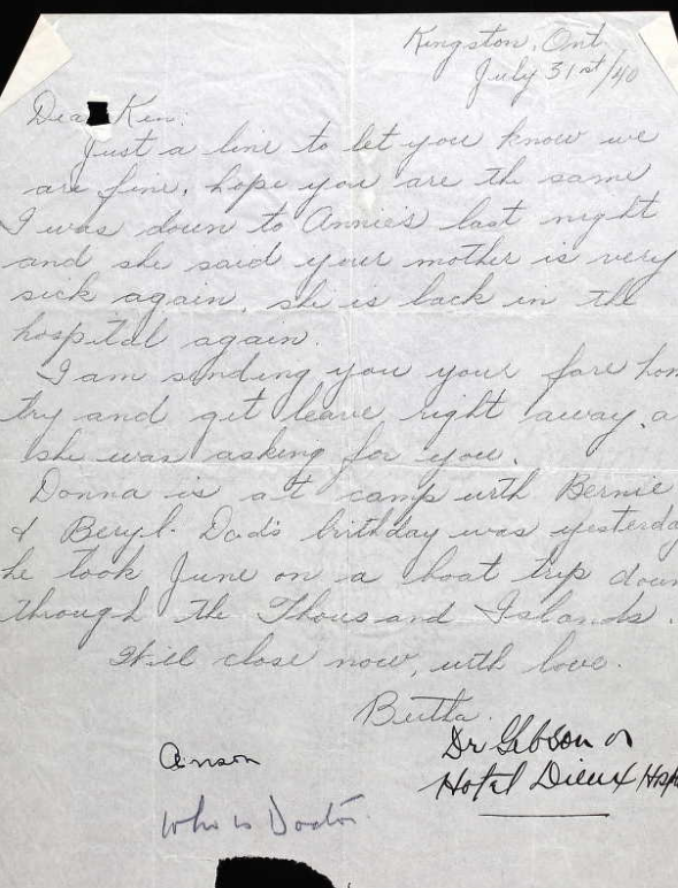 Kingston, Ont.
July 31st/40
Dear Ken:
Just a line to let you know we
are fine, hope you are the same
I was down to Annie's last night
and she said your mother is very
sick again, she is back in the
hospital again.
I am sending you your fare hom
try and get leave right away, a
she was asking for you.
Donna is at camp with Bernie
& Beryl. Dad's birthday was yesterda
he took June on a boat trip down
through the Thousand Islands.
Will close now, with love.
Bertha.
Dr Gibson or
Hotel Dieux Hosp
Anson
Who is Doctor.